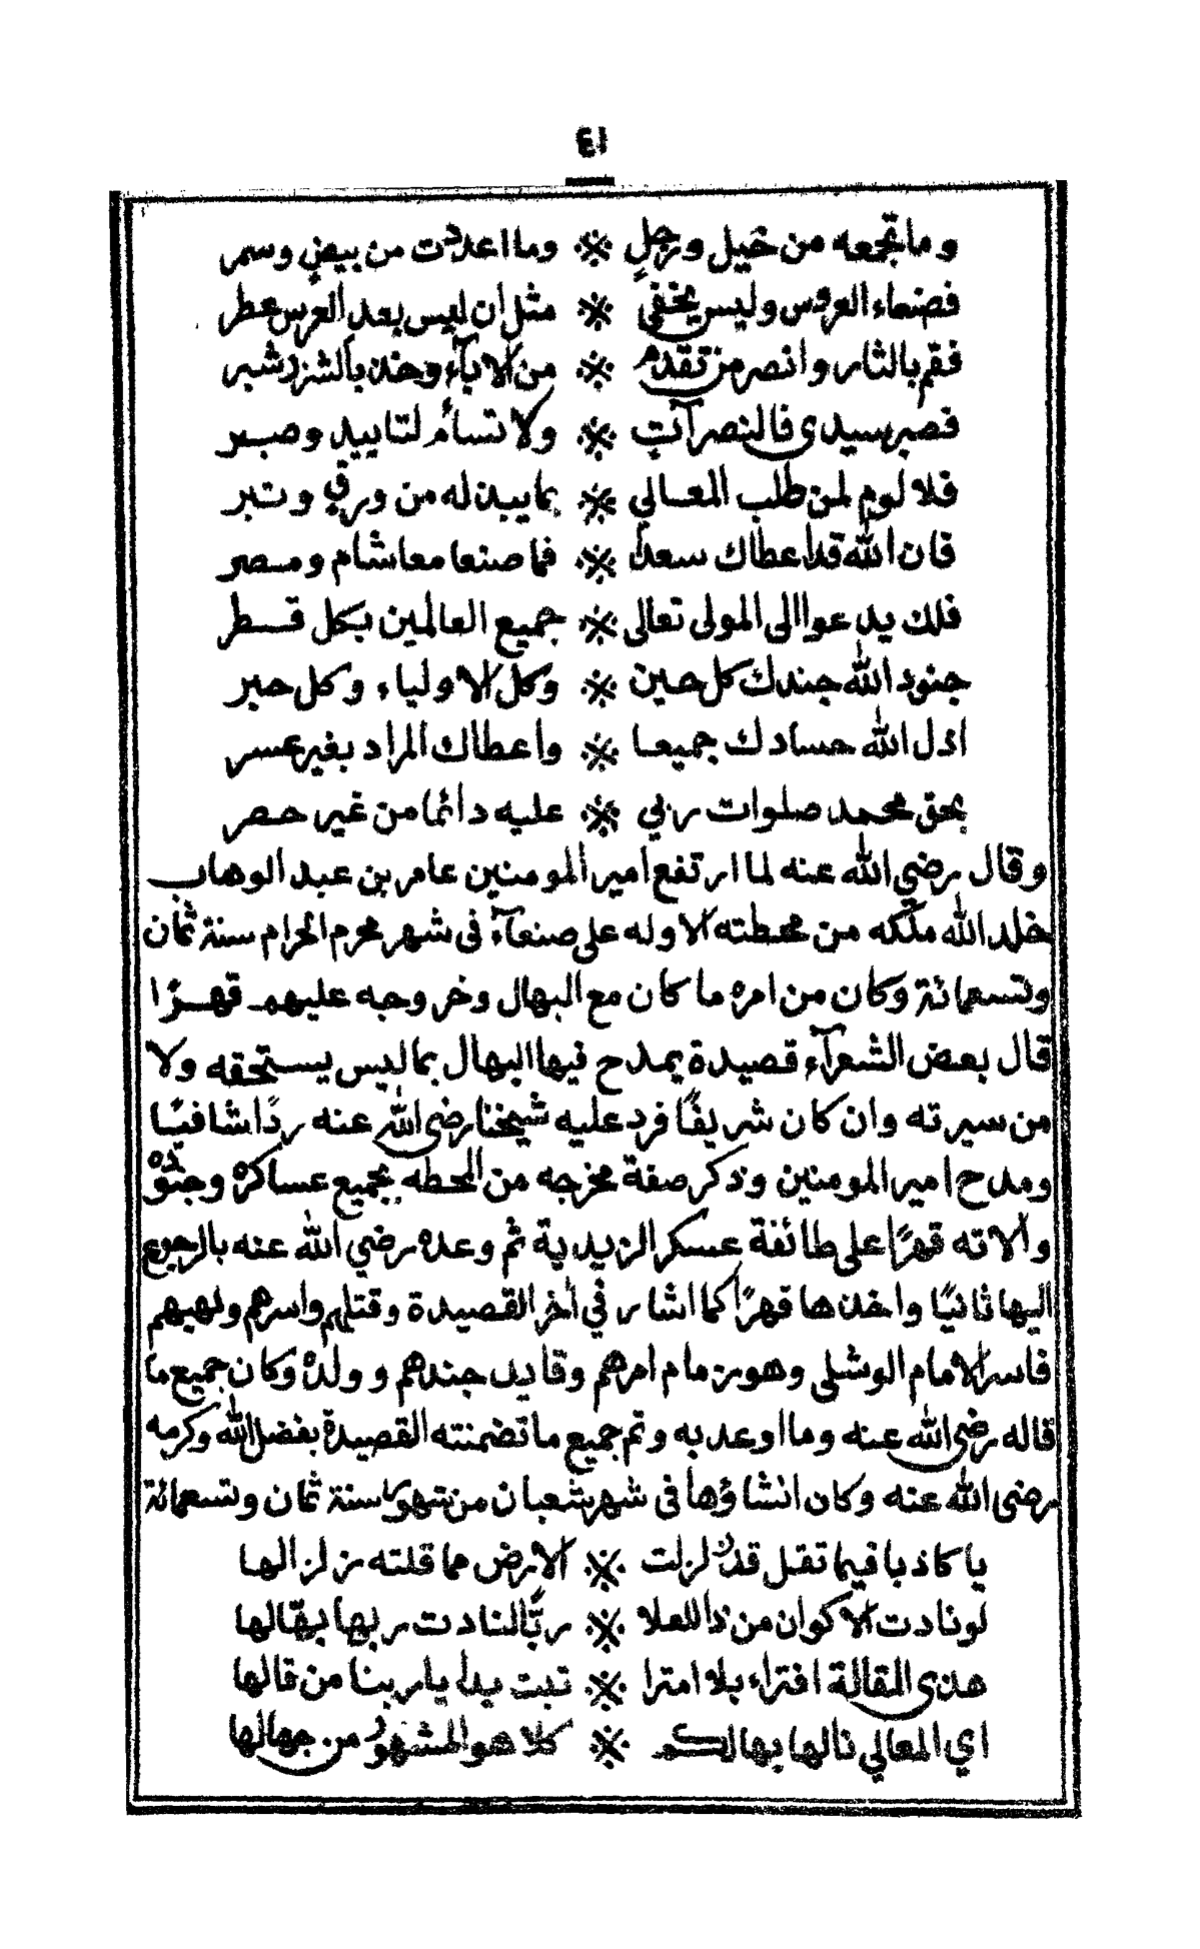 ٤١
وما تجمعه من خيل ورجل ※ وما اعددت من بيض وسمر
فصنعاء العروس وليس يخفى ※ مثل ان ليس بعد العرس عطر
فقم بالثار وانصر من تقدم ※ من الاباء وخذ بالشبر شبر
فصبر سيدى فالنصر آت ※ ولا تسأم لتاييد وصبر
فلا لوم لمن طلب المعالي ※ بما يبذله من ورق وتبر
فان الله قد اعطاك سعدا ※ فما صنعا معا شام ومصر
فلك يدعوا الى المولى تعالى ※ جميع العالمين بكل قطر
جنود الله جندك كل حين ※ وكل الاولياء وكل حبر
اذل الله حسادك جميعا ※ واعطاك المراد بغير عسر
بحق محمد صلوات ربي ※ عليه دائما من غير حصر
وقال رضي الله عنه لما ارتفع امير المومنين عامر بن عبد الوهاب
خلد الله ملكه من محطته الاوله على صنعآء فى شهر محرم الحرام سنة ثمان
وتسعمائة وكان من امره ما كان مع البهال وخروجه عليهم قهرًا
قال بعض الشعرآء قصيدة يمدح فيها البهال بما ليس يستحقه ولا
من سيرته وان كان شريفًا فرد عليه شيخنا رضى الله عنه ردًا شافيًا
ومدح امير المومنين وذكر صفة مخرجه من المحطه بجميع عساكره وجنوده
والاته قهرًا على طائفة عسكر الزيدية ثم وعده رضي الله عنه بالرجوع
اليها ثانيًا واخذها قهرًا كما اشار في اخر القصيدة وقتلهم واسرهم ونهبهم
فاسر الامام الوشلى وهو زمام امرهم وقايد جندهم وولده وكان جميع ما
قاله رضى الله عنه وما اوعد به وتم جميع ما تضمنته القصيدة بفضل الله وكرمه
رضى الله عنه وكان انشاؤها فى شهر شعبان من شهور سنة ثمان وتسعمائة
يا كاذبا فيما تقل قد زلزلت ※ الارض مما قلته زلزالها
لو نادت الاكوان من ذا للعلا ※ ربًّا لنادت ربها بهّالها
هذى المقالة افتراء بلا امترا ※ تبت يدا يا ربنا من قالها
اي المعالي نالها بهالكم ※ كلا هو المشهور من جهالها